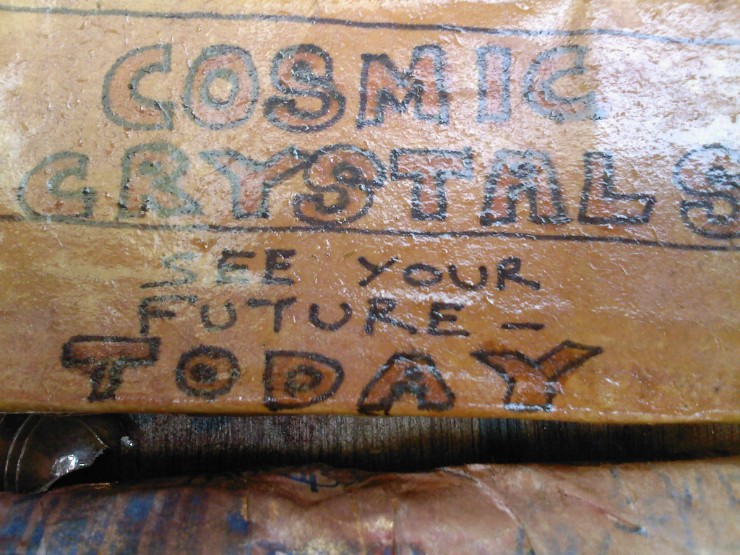 COSMIC
CRYSTALS
SEE YOUR
FUTURE -
TODAY